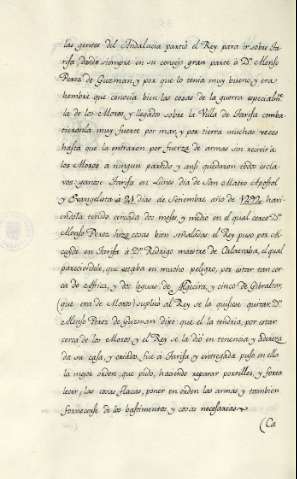 las gentes del Andalucia partió el Rey para ir sobre Ta-
rifa, dando siempre en su consejo gran parte á Dn. Alonso
Perez de Guzman, y por que lo tenia muy bueno, y era
hombre que conocia bien las cosas de la guerra especialmte.
la de los Moros, y llegados sobre la Villa de Tarifa comba
tieronla muy fuerte por mar, y por tierra muchas veces
hasta que la entraron por fuerza de armas sin recivir á
los Moros á ningun partido, y ansi quedaron todos escla
vos ganose Tarifa en Lunes dia de San Mateo Apostol
y Evangelista á 21 dias de Setiembre, año de 1292, havi-
endola tenido cercada dos meses, y medio en el qual cerco Dn.
Alonso Perez hizo cosas bien señaladas el Rey puso por Al-
cayde en Tarifa á Dn. Rodrigo maestre de Calatrava, el qual
pareciendole, que estaba en mucho peligro, por estar tan cer-
ca de Africa, y dos leguas de Algecira, y cinco de Gibraltar
(que era de Moros) suplicó al Rey se la quisiese quitar Dn.
Alonso Perez de Guzman dijo que el la tendria, por estar
cerca de los Moros y el Rey se la dió en tenencia, y
de su casa, y criados, fue á Tarifa y entregada puso en ella
la mejor orden, que pudo, haciendo reparar portillos, y forta
lecer, las cosas flacas, poner en orden las armas, y tambien
de los bastimentos y cosas necesarias
(Ca